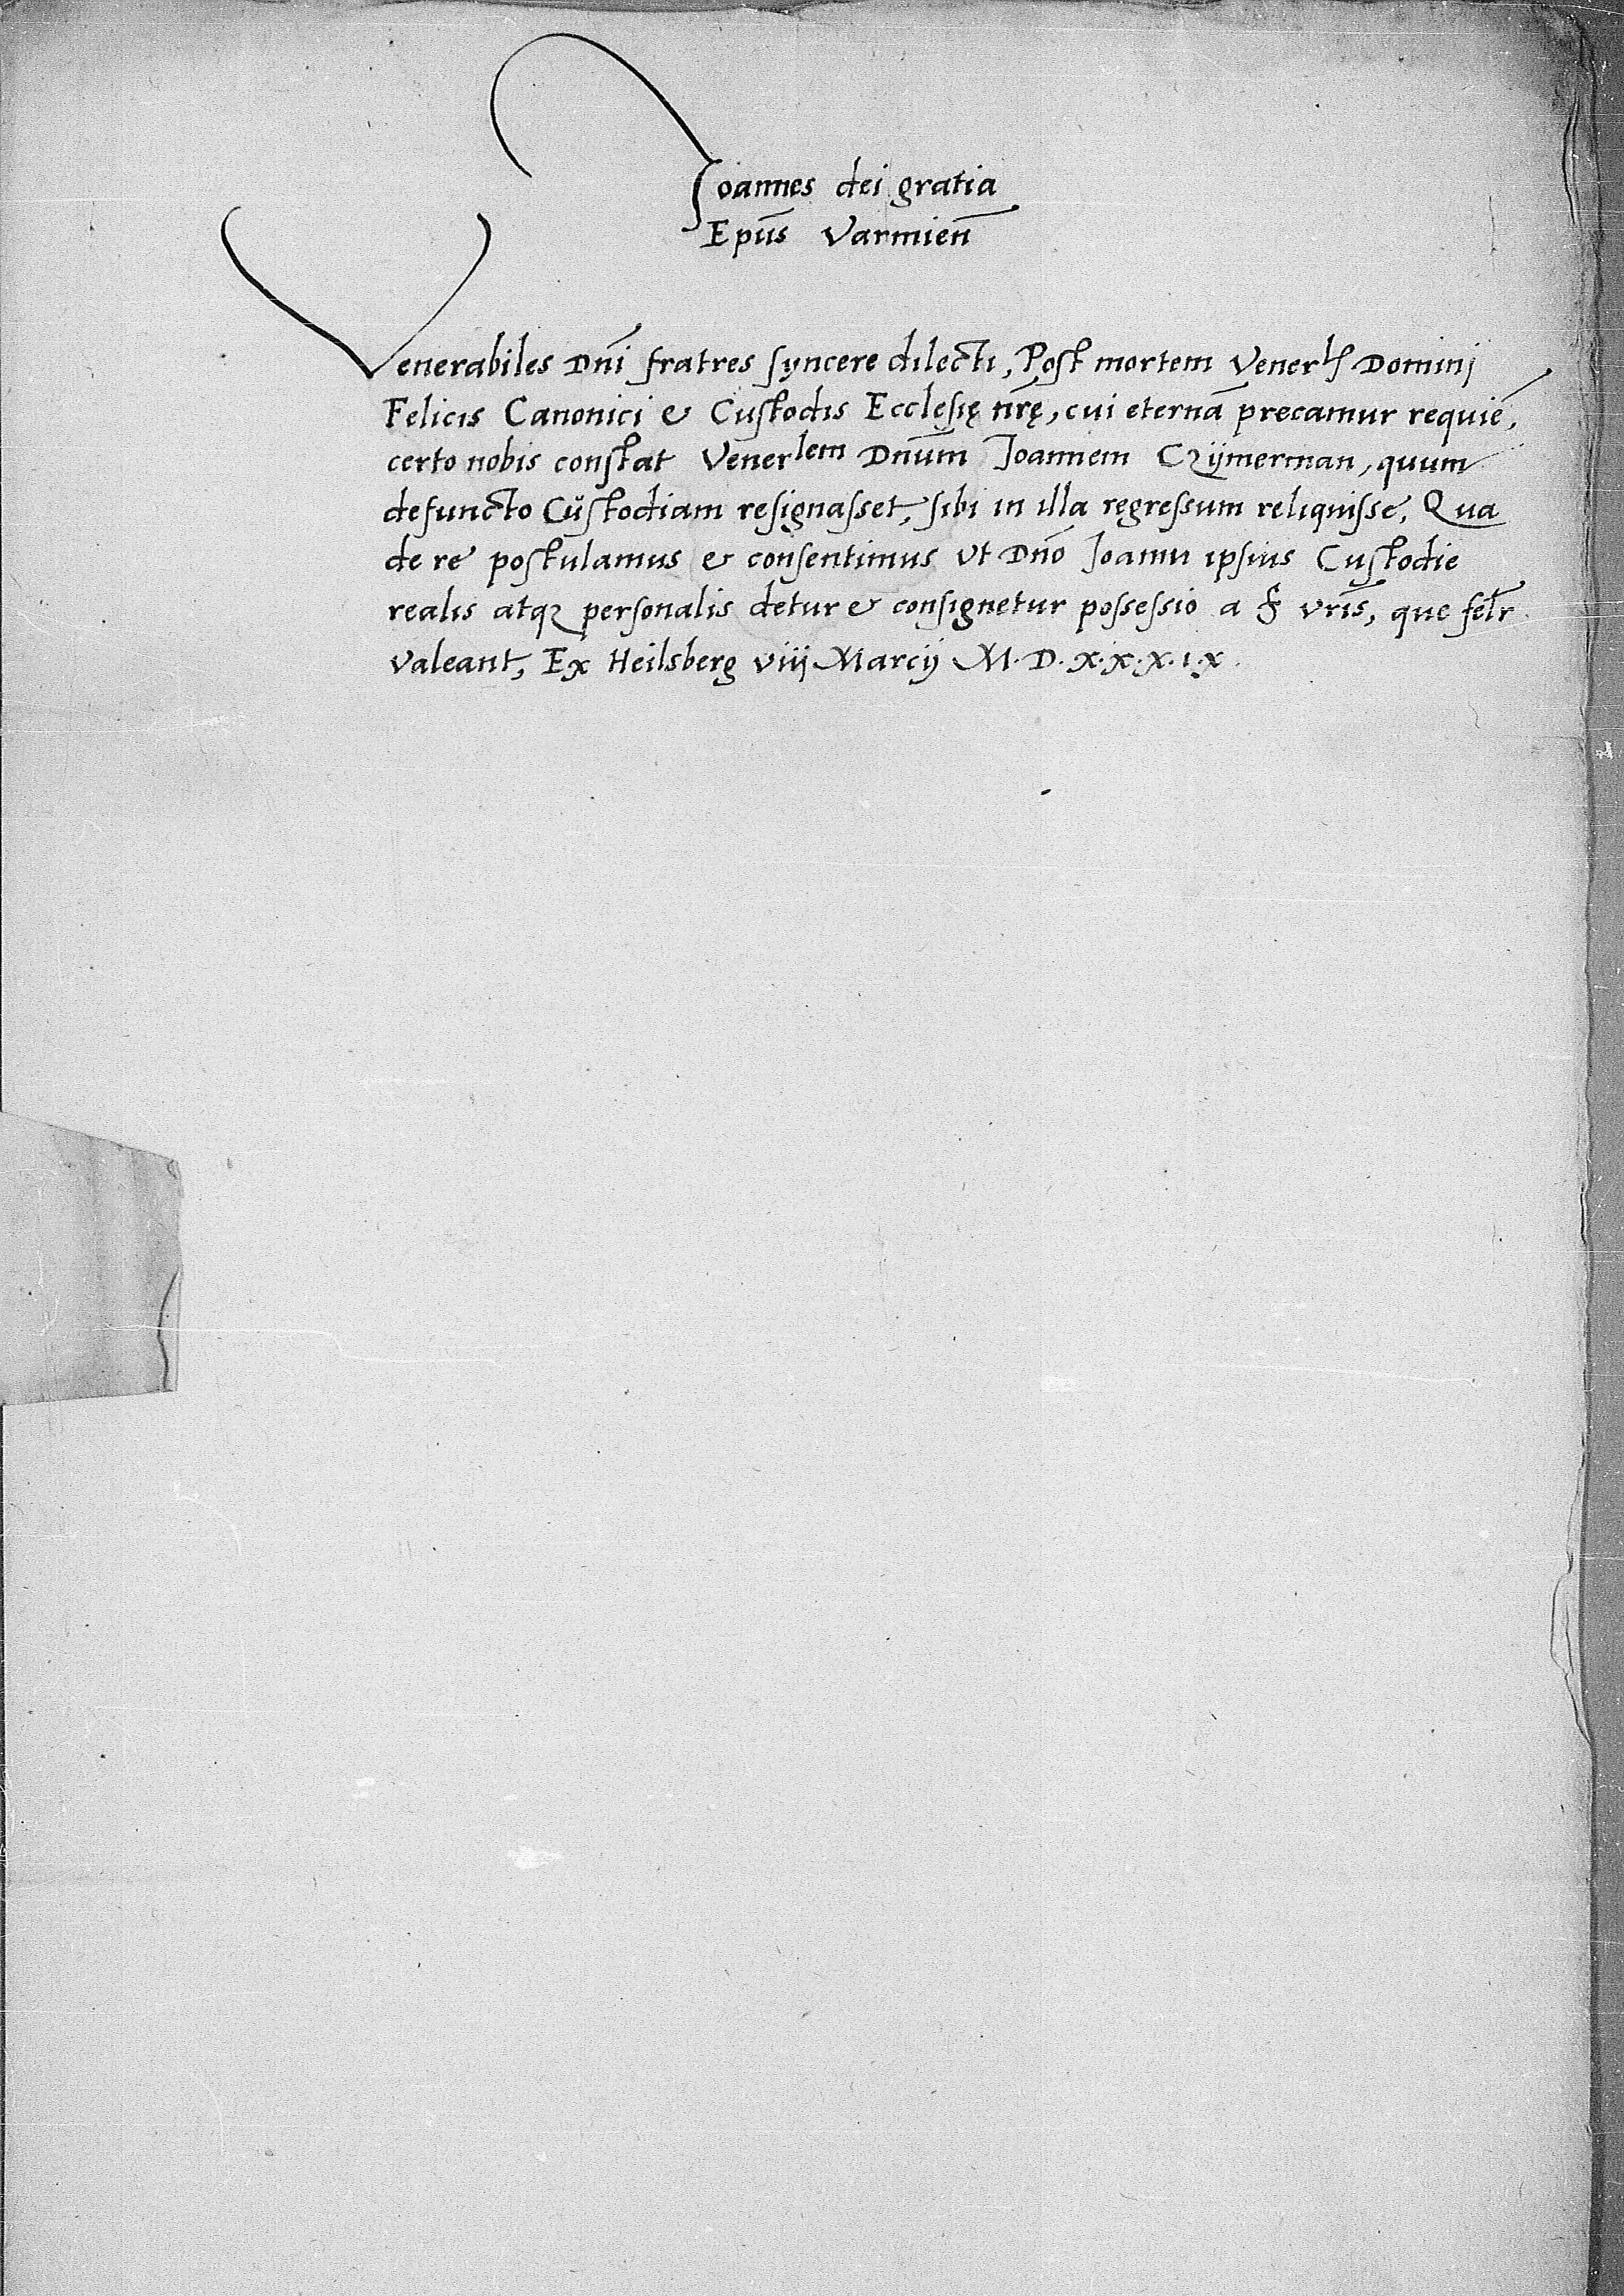 Ioannes dei gratia
Epūs Varmien̄
Venerabiles Dn̄i fratres syncere dilecti, Post mortem Venerlis Dominj
Felicis Canonici & Custodis Ecclesię nr̄ę, cui eternā precamur requiē,
certo nobis constat Venerlem Dnūm Ioannem Czijmerman, quum
defuncto Cŭstodiam resignasset, sibi in illa regressum reliquisse. Qua
de re postulamus & consentimus Vt Dnō Ioanni ipsius Custodie
realis atqz personalis detur & consignetur possessio a f vrīs, que fel̄r
Valeant, Ex Heilsberg viij Marcij M. D. x. x. x. i. x.